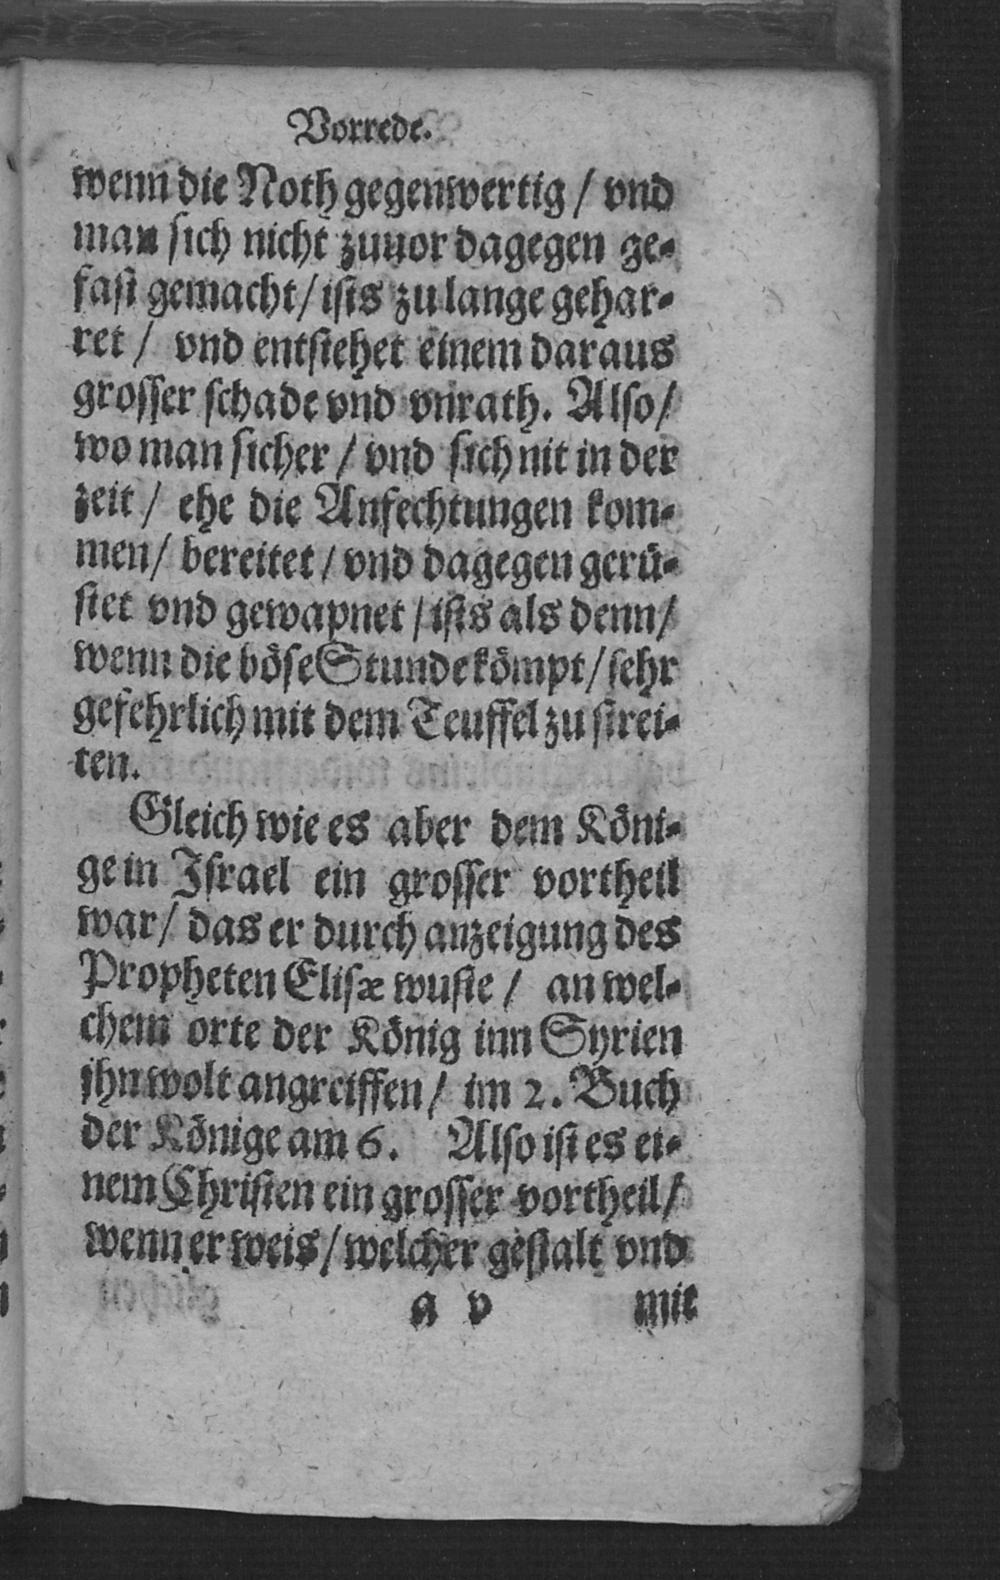 Vorrede.
wenn die Noth gegenwertig / vnd
man sich nicht zuuor dagegen ge-
fast gemacht / ists zu lange gehar-
ret / vnd entstehet einem daraus
grosser schade vnd vnrath. Also /
wo man sicher / vnd sich nit in der
zeit / ehe die Anfechtungen kom-
men / bereitet / vnd dagegen gerü-
stet vnd gewapnet / ists als denn /
wenn die böse Stunde kömpt / sehr
gefehrlich mit dem Teuffel zu strei-
ten.
Gleich wie es aber dem Köni-
ge in Israel ein grosser vortheil
war / das er durch anzeigung des
Propheten Elisæ wuste / an wel-
chem orte der König inn Syrien
jhn wolt angreiffen / im 2. Buch
der Könige am 6. Also ist es ei-
nem Christen ein grosser vortheil /
wenn er weis / welcher gestalt vnd
a v mit